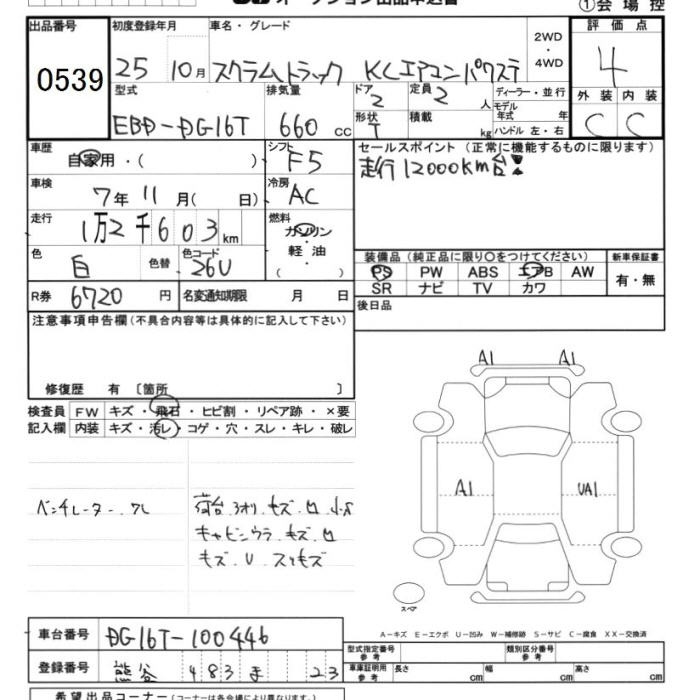 オークション出品申込書
①会場控
出品番号 初度登録年月 車名・グレード 2WD ・ 4WD 評価点
0539 25 10月 スクラムトラック KCエアコンパワステ 4
型式 排気量 ドア 定員 ディーラー・並行 外装 内装
EBD-DG16T 660 cc 2 2 人 モデル年式 年 C C
形状 T 積載 kg ハンドル 左・右
車歴 自家用・( ) シフト F5 セールスポイント (正常に機能するものに限ります)
走行12000km台
車検 7年 11月( 日) 冷房 AC
走行 1万2千603km 燃料 ガソリン 軽油 ( )
色 白 色替 色コード 26U
装備品 (純正品に限り○をつけてください) 新車保証書
PS PW ABS エアB AW 有・無
SR ナビ TV カワ
R券 6720 円 名変通知期限 月 日
後日品
注意事項申告欄 (不具合内容等は具体的に記入して下さい)
修復歴 有 〔箇所 〕
検査員 FW キズ・飛石・ヒビ割・リペア跡・×要
記入欄 内装 キズ・汚レ・コゲ・穴・スレ・キレ・破レ
A1 A1
A1 UA1
ベンチレーター.ワレ
荷台.3オリ.キズ.凹.小S
キャビンウラ.キズ.凹
キズ.U.スリキズ
スペア
A-キズ E-エクボ U-凹み W-補修跡 S-サビ C-腐食 XX-交換済
車台番号 DG16T-100446
型式指定番号 参考 類別区分番号 参考
登録番号 熊谷 483 ま 23
車庫証明用 参考 長さ cm 幅 cm 高さ cm
希望出品コーナー (コーナーは各会場により異なります)